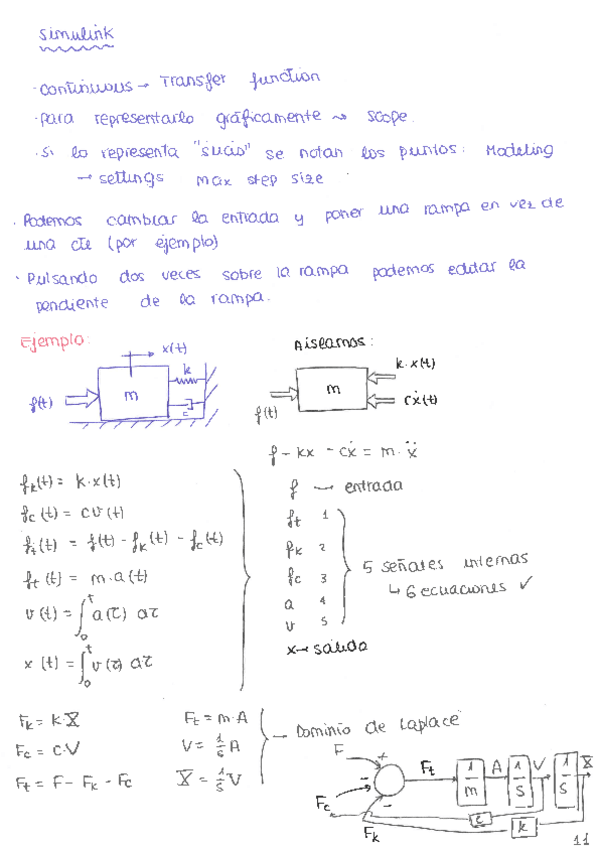 Simulink
· continuous → Transfer function
· para representarlo gráficamente → scope.
· si lo representa "sucio" se notan los puntos: Modeling
→ settings max step size
· Podemos cambiar la entrada y poner una rampa en vez de
una cte (por ejemplo)
· Pulsando dos veces sobre la rampa podemos editar la
pendiente de la rampa.
Ejemplo:
x(t)
k
m
f(t)
c
Aislamos:
k·x(t)
m
f(t)
cẋ(t)
f - kx - cẋ = m·ẍ
fk(t) = k·x(t)
fc(t) = cv(t)
ft(t) = f(t) - fk(t) - fc(t)
ft(t) = m·a(t)
v(t) = ∫₀ᵗ a(τ) dτ
x(t) = ∫₀ᵗ v(τ) dτ
f → entrada
ft 1
fk 2
fc 3
a 4
v 5
5 señales internas
↳ 6 ecuaciones ✓
x → salida
Fk = k·X
Fc = c·V
Ft = F - Fk - Fc
Ft = m·A
V = 1/s A
X = 1/s V
→ Dominio de Laplace
F
+
-
-
Fc
Fk
Ft
1/m
A
1/s
V
1/s
X
c
k
11